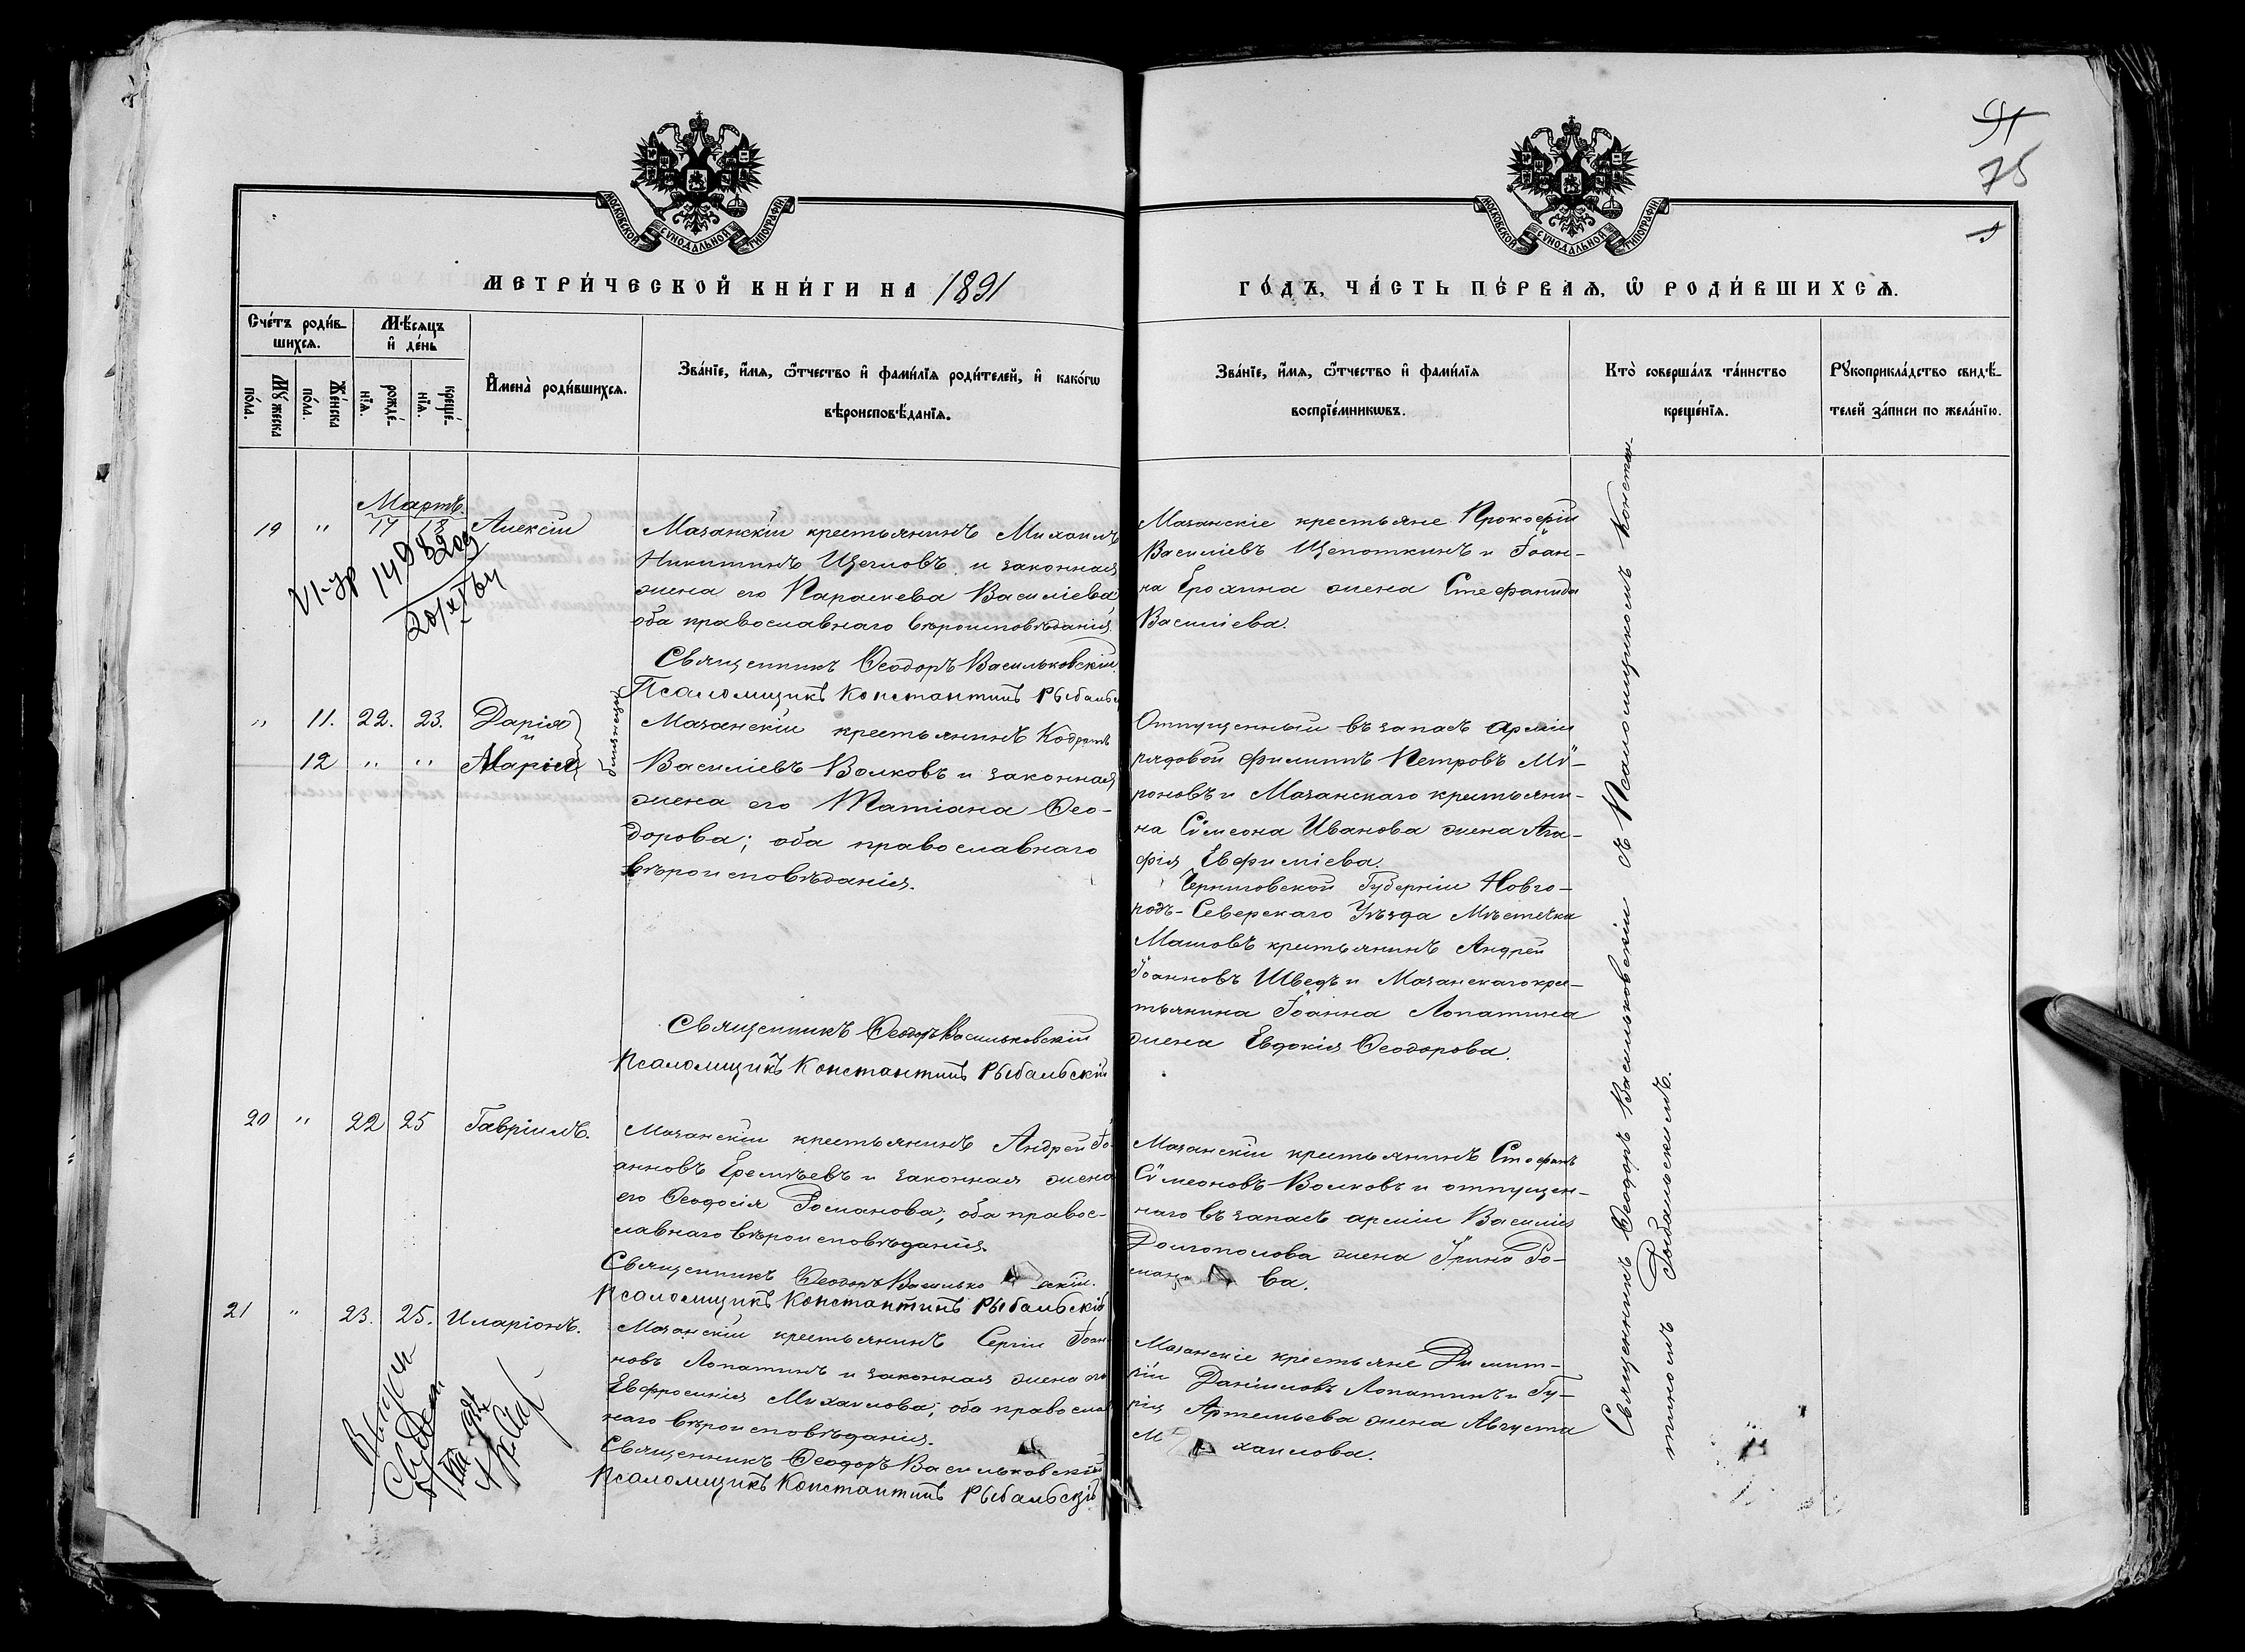 91
75
МОСКОВСКОЙ СУНОДАЛЬНОЙ ТИПОГРАФІИ
МОСКОВСКОЙ СУНОДАЛЬНОЙ ТИПОГРАФІИ
МЕТРИ́ЧЕСКОЙ КНИ́ГИ НА 1891
ГО́ДЪ, ЧА́СТЬ ПЕ́РВАѦ, Ѡ РОДИ́ВШИХСѦ.
Сче́тъ роди́в-
шихсѧ.
Мѣ́сѧцъ
и҆ де́нь
Мꙋжеска
по́ла.
Же́нска
по́ла.
рожде́-
нїѧ.
креще́-
нїѧ.
И҆мена̀ роди́вшихсѧ.
Зва́нїе, и҆́мѧ, ѻ҆́тчество и҆ фами́лїѧ роди́телей, и҆ како́гѡ
вѣроисповѣ́данїѧ.
Зва́нїе, и҆́мѧ, ѻ҆́тчество и҆ фами́лїѧ
воспрїе́мникѡвъ.
Кто̀ соверша́лъ та́инство
креще́нїѧ.
Рꙋкоприкла́дство свидѣ́-
телей за́писи по жела́нїю.
Мартъ.
19 " 17 18 Алексій
Мазанскій крестьянинъ Михаилъ
Никитинъ Щегловъ и законная
жена его Параскева Василіева
оба православнаго вѣроисповѣданія.
Священникъ Ѳеодоръ Васильковскій
Псаломщикъ Константинъ Рыбальск
Мазанскіе крестьяне Прокофій
Василіевъ Щепоткинъ и Іоан-
на Ерохина жена Стефанида
Василіева.
20/XI 64
" 11. 22. 23. Дарія
и
12 " " Марія
близнецы
Мазанскій крестьянинъ Кодратъ
Василіевъ Волковъ и законная
жена его Татіана Ѳео-
дорова; оба православнаго
вѣроисповѣданія.
Священникъ Ѳеодоръ Васильковскій
Псаломщикъ Константинъ Рыбальскій
Отпущенный въ запасъ арміи
рядовой Филиппъ Петровъ Ми-
роновъ и Мазанскаго крестьяни-
на Сѵмеона Иванова жена Ага-
фія Евфиміева.
Черниговской Губерніи Новго-
родъ-Северскаго Уѣзда Мѣстечка
Машовъ крестьянинъ Андрей
Іоанновъ Шведъ и Мазанскаго кре-
тьянина Іоанна Лопатина
жена Евдокія Ѳеодорова.
20 " 22 25 Гавріилъ.
Мазанскій крестьянинъ Андрей Іо-
анновъ Еремѣевъ и законная жена
его Ѳеодосія Романова; оба правос-
лавнаго вѣроисповѣданія.
Священникъ Ѳеодоръ Василько скій.
Псаломщикъ Константинъ Рыбальскій
Мазанскій крестьянинъ Стефанъ
Сѵмеоновъ Волковъ и отпущен-
наго въ запасъ арміи Василія
Долгополова жена Ирина Ро-
мано ва.
21 " 23. 25. Иларіонъ.
Мазанскій крестьянинъ Сергій Іоан
новъ Лопатинъ и законная жена его
Евфросинія Михаилова; оба православ
наго вѣроисповѣданія.
Священникъ Ѳеодоръ Васильковскій
Псаломщикъ Константинъ Рыбальскій
Мазанскіе крестьяне Димит-
рій Даніиловъ Лопатинъ и Гу-
рія Артемьева жена Августа
Ми хаилова.
Священникъ Ѳеодоръ Васильковскій съ Псаломщикомъ Констан-
тиномъ Рыбальскимъ.